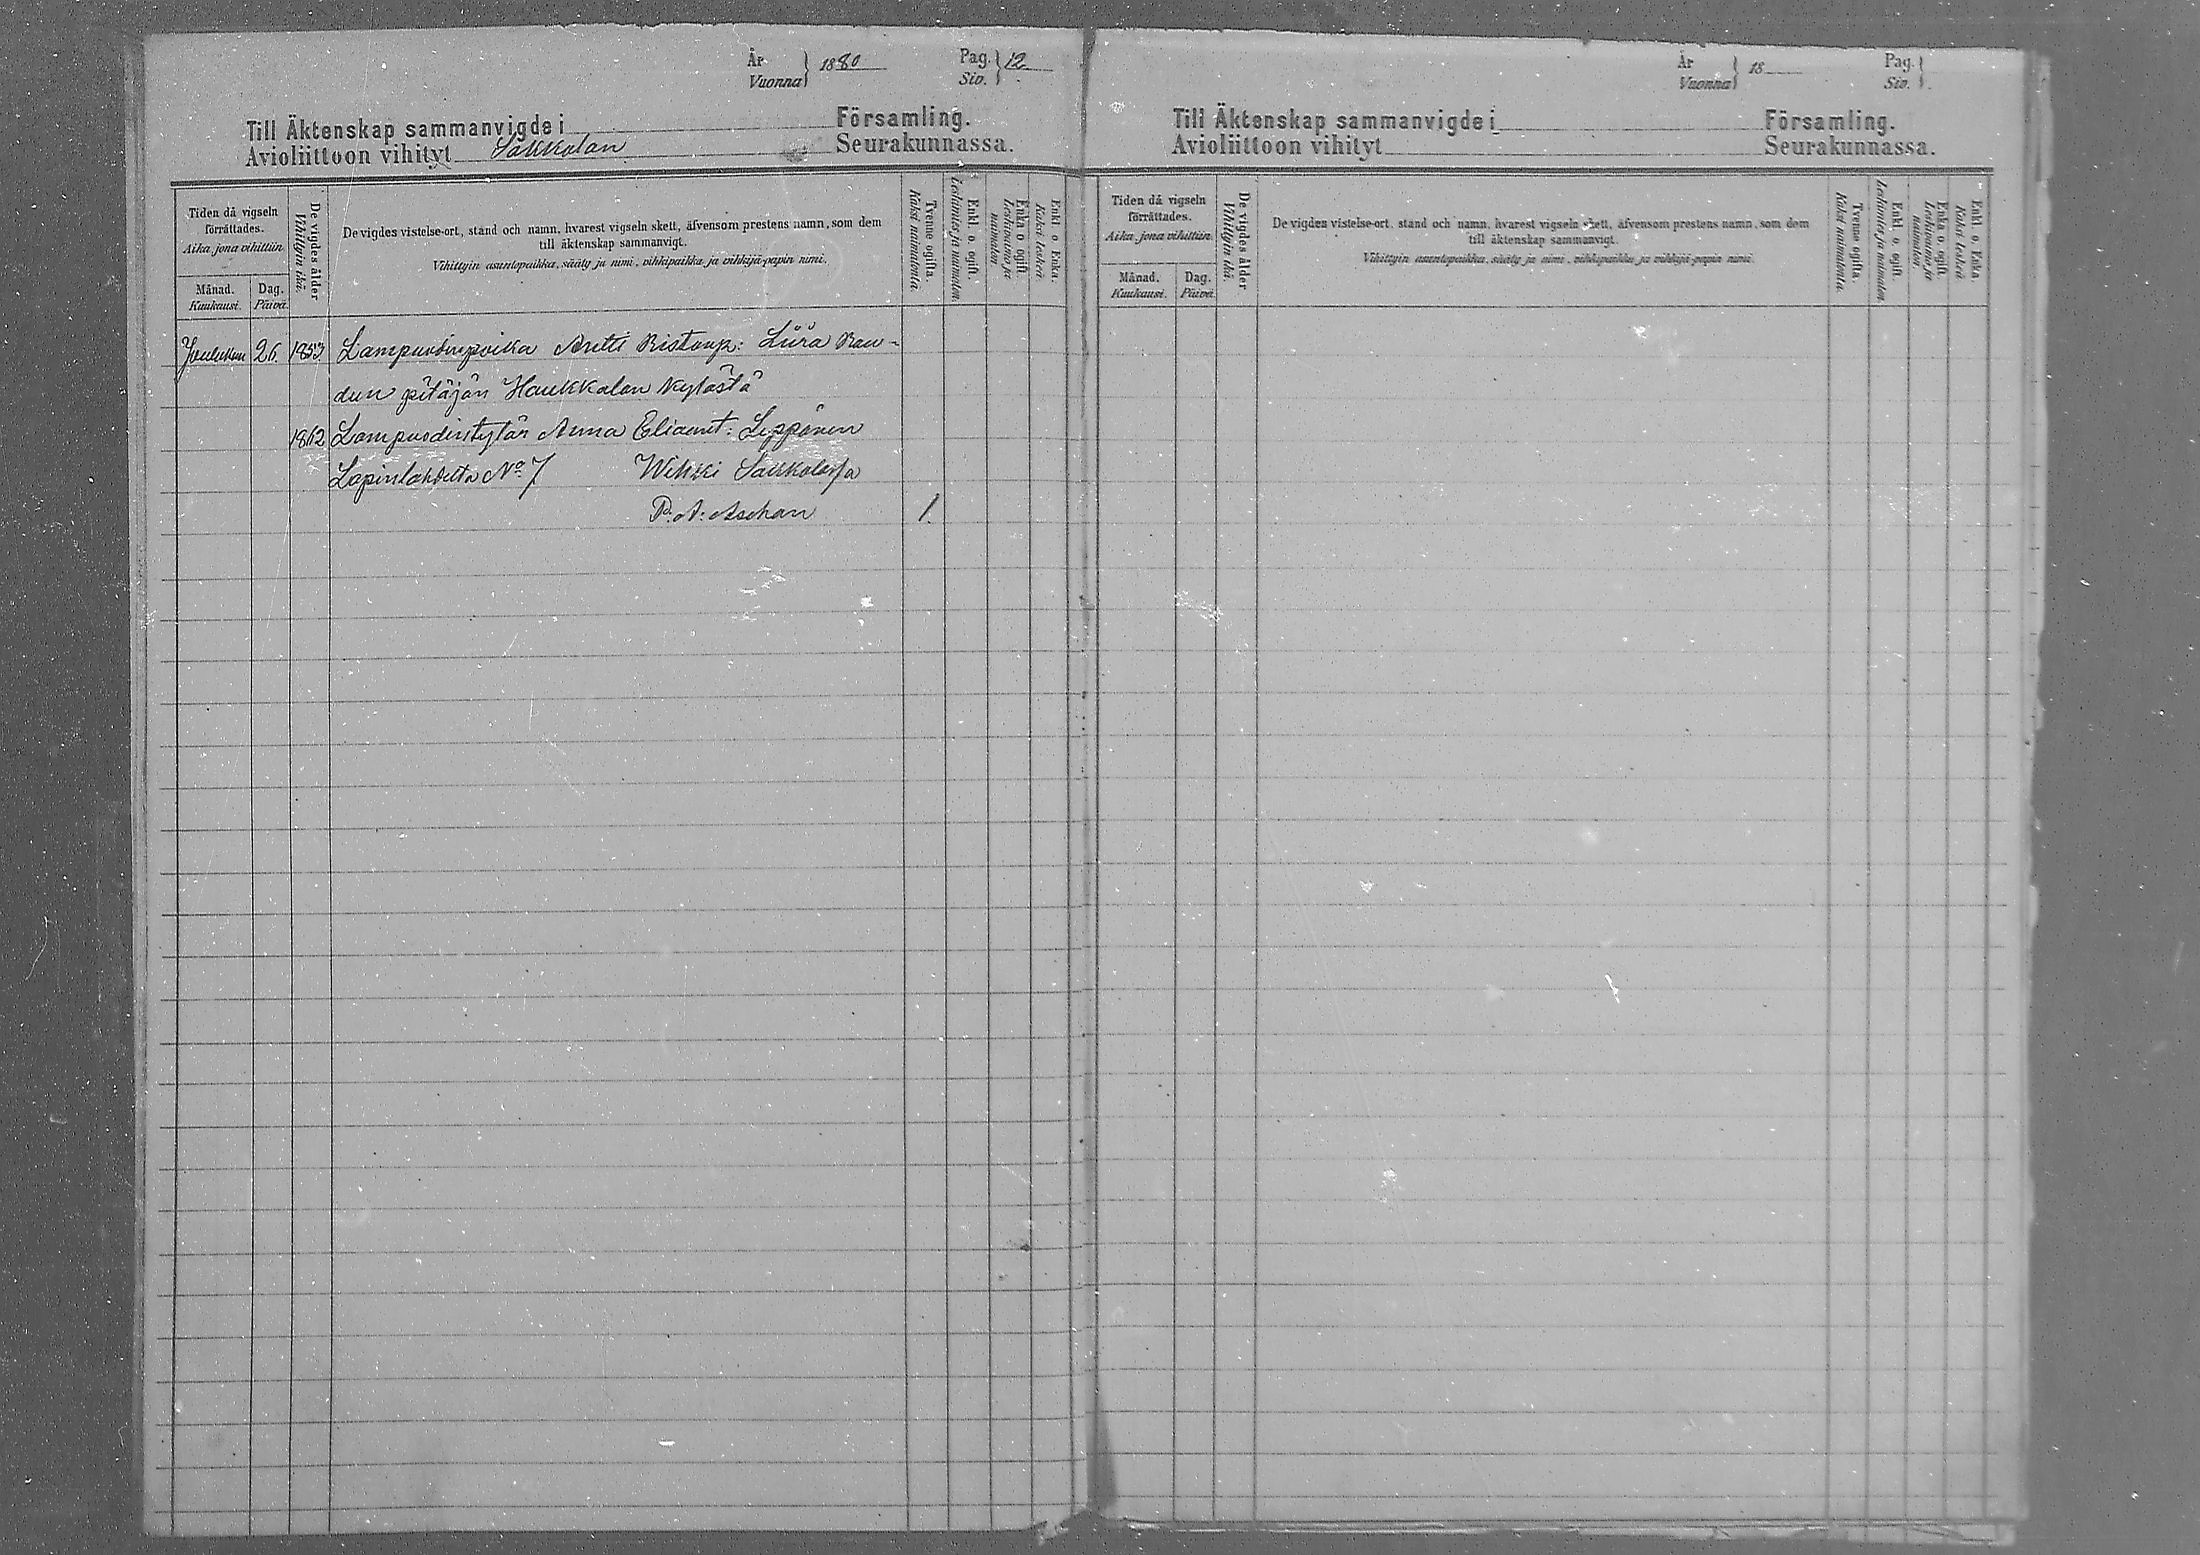 År
Vuonna } 1880 Pag.
Siv. } 12
Till Äktenskap sammanvigde i Församling.
Avioliittoon vihityt Sakkolan Seurakunnassa.
Tiden då vigseln
förrättades.
Aika, jona vihittiin
Månad.
Kuukausi.
Dag.
Päivä.
De vigdes ålder
Vihittyin ikä.
De vigdes vistelse-ort, stånd och namn, hvarest vigseln skett, äfvensom prestens namn, som dem
till äktenskap sammanvigt.
Vihittyin asuntopaikka, sääty ja nimi, vihkipaikka ja vihkijä-papin nimi.
Tvenne ogifta.
Kaksi naimatonta.
Enkl. o. ogift.
Leskimies ja naimaton.
Enka o. ogift.
Leskivaimo ja
naimaton.
Enkl. o Enka.
Kaksi leskeä.
Joulukuu 26. 1853 Lampuodinpoika Antti Ristonp: Liira Rau-
dun pitäjän Haukkalan kylästä
1862 Lampuodintytär Anna Eliaant: Leppönen
Lapinlahdelta No 7 Wihki Sakkolassa
P. A: Aschan 1.
År
Vuonna } 18 Pag.
Siv. }
Till Äktenskap sammanvigde i Församling.
Avioliittoon vihityt Seurakunnassa.
Tiden då vigseln
förrättades.
Aika, jona vihittiin.
Månad.
Kuukausi.
Dag.
Päivä.
De vigdes ålder
Vihittyin ikä.
De vigdes vistelse-ort, stånd och namn, hvarest vigseln skett, äfvensom prestens namn, som dem
till äktenskap sammanvigt.
Vihittyin asuntopaikka, sääty ja nimi, vihkipaikka ja vihkijä-papin nimi.
Tvenne ogifta.
Kaksi naimatonta.
Enkl. o. ogift.
Leskimies ja naimaton.
Enka o. ogift.
Leskivaimo ja
naimaton.
Enkl. o Enka.
Kaksi leskeä.